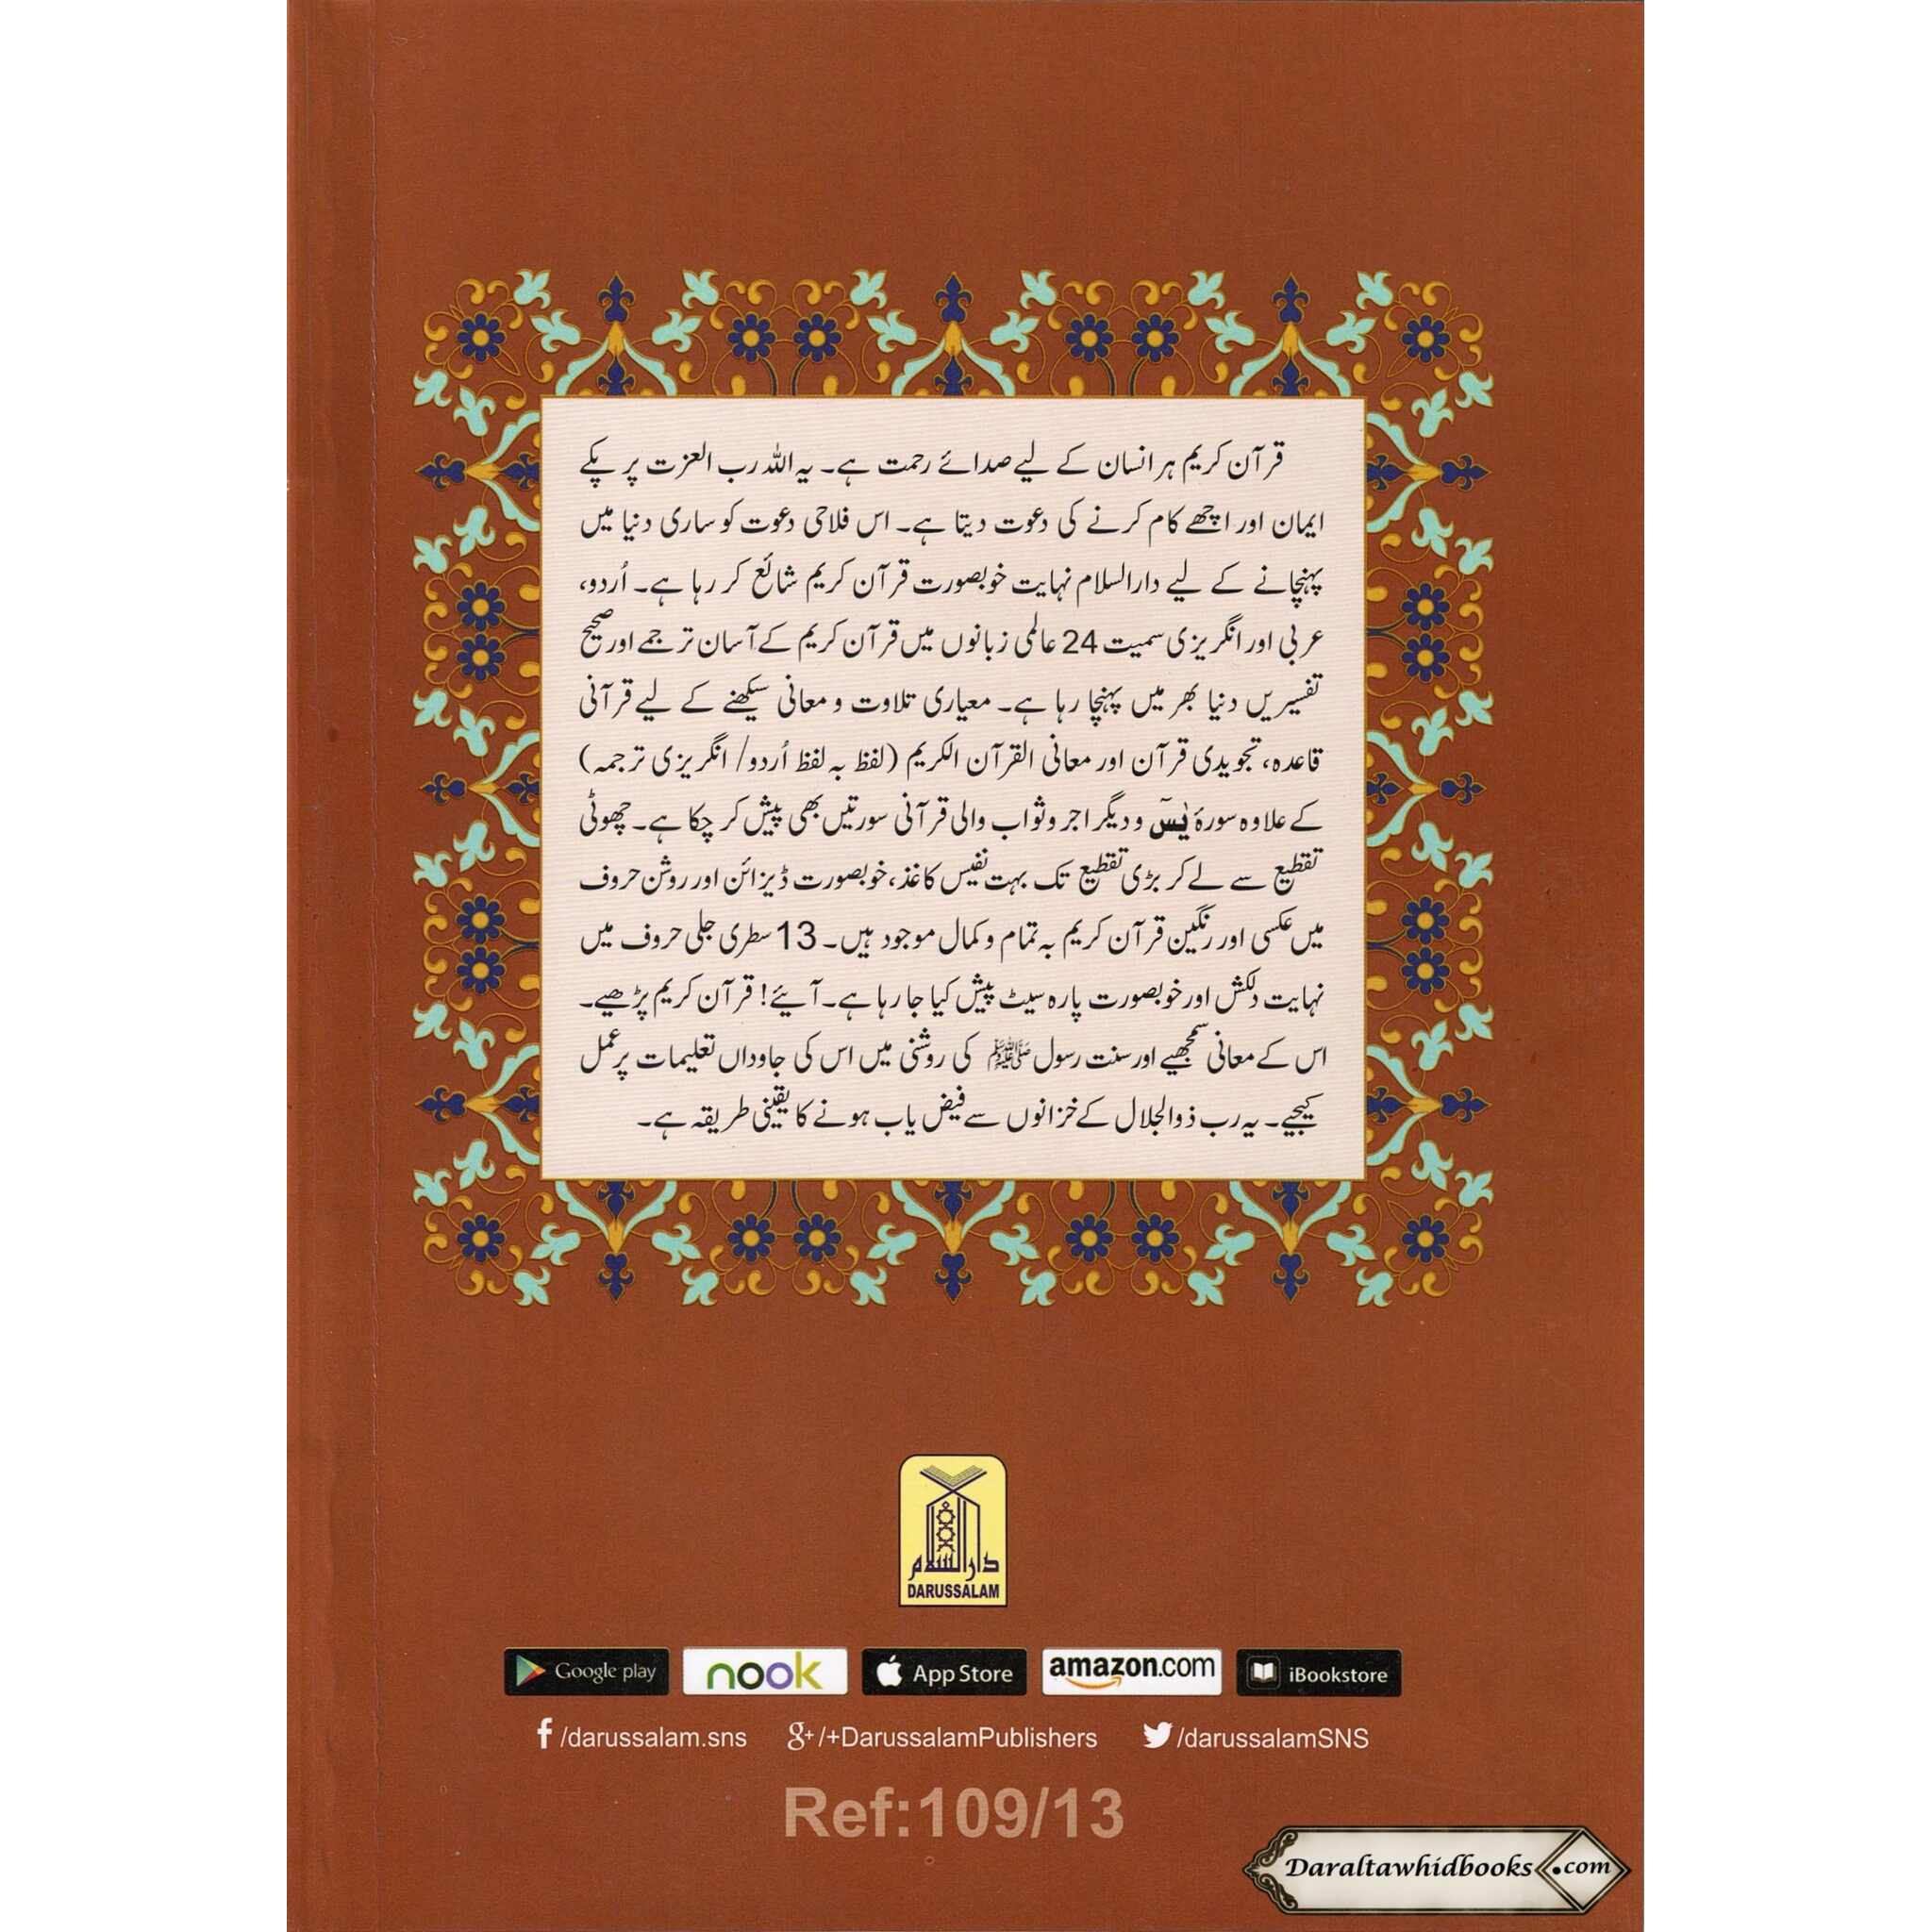 قرآن کریم ہر انسان کے لیے صدائے رحمت ہے۔ یہ اللہ رب العزت پر پکے
ایمان اور اچھے کام کرنے کی دعوت دیتا ہے۔ اس فلاحی دعوت کو ساری دنیا میں
پہنچانے کے لیے دارالسلام نہایت خوبصورت قرآن کریم شائع کر رہا ہے۔ اُردو،
عربی اور انگریزی سمیت 24 عالمی زبانوں میں قرآن کریم کے آسان ترجمے اور صحیح
تفسیریں دنیا بھر میں پہنچا رہا ہے۔ معیاری تلاوت و معانی سیکھنے کے لیے قرآنی
قاعدہ، تجویدی قرآن اور معانی القرآن الکریم (لفظ بہ لفظ اُردو/ انگریزی ترجمہ)
کے علاوہ سورۂ یٰسٓ و دیگر اجر و ثواب والی قرآنی سورتیں بھی پیش کر چکا ہے۔ چھوٹی
تقطیع سے لے کر بڑی تقطیع تک بہت نفیس کاغذ، خوبصورت ڈیزائن اور روشن حروف
میں عکسی اور رنگین قرآن کریم بہ تمام و کمال موجود ہیں۔ 13 سطری جلی حروف میں
نہایت دلکش اور خوبصورت پارہ سیٹ پیش کیا جا رہا ہے۔ آیئے! قرآن کریم پڑھیے۔
اس کے معانی سمجھیے اور سنت رسول ﷺ کی روشنی میں اس کی جاوداں تعلیمات پر عمل
کیجیے۔ یہ رب ذوالجلال کے خزانوں سے فیض یاب ہونے کا یقینی طریقہ ہے۔
دارالسلام
DARUSSALAM
Google play nook App Store amazon.com iBookstore
f /darussalam.sns g+ /+DarussalamPublishers /darussalamSNS
Ref:109/13
Daraltawhidbooks.com